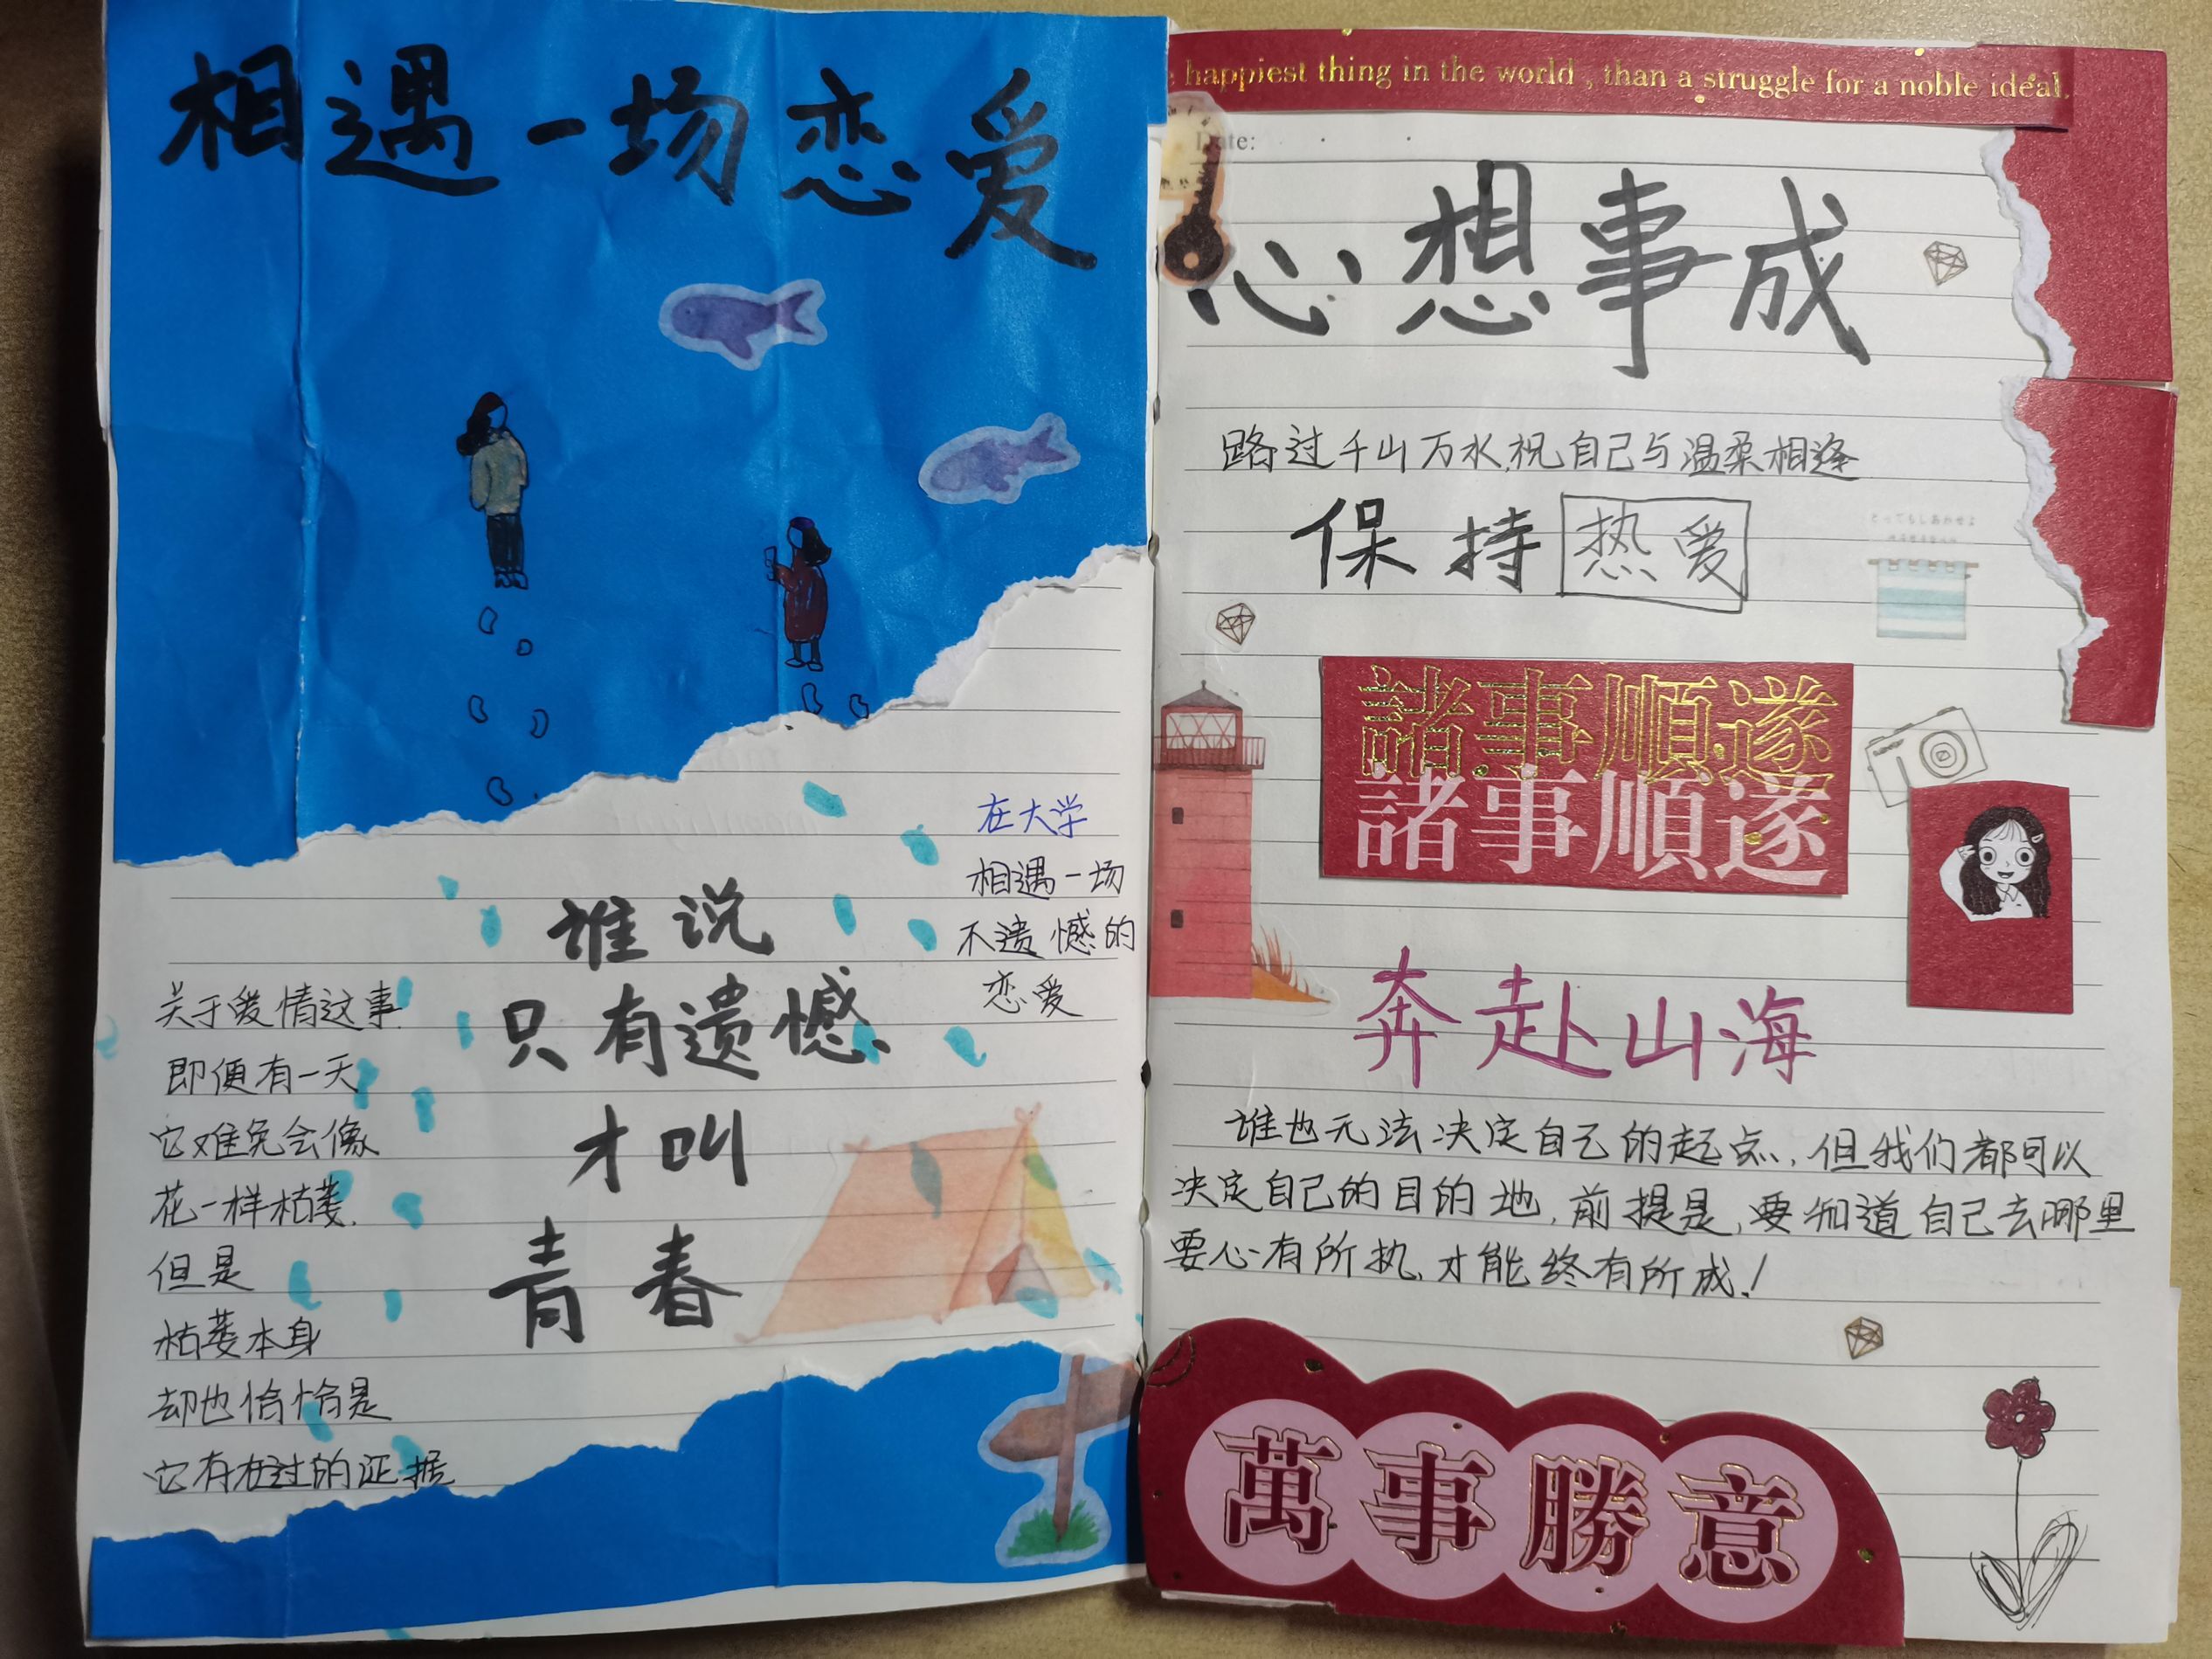 相遇一场恋爱
在大学
相遇一场
不遗憾的
恋爱
谁说
只有遗憾
才叫
青春
关于爱情这事
即便有一天
它难免会像
花一样枯萎
但是
枯萎本身
却也恰恰是
它存在过的证据
happiest thing in the world , than a struggle for a noble ideal.
Date:
心想事成
路过千山万水,祝自己与温柔相逢
保持热爱
諸事順遂
諸事順遂
奔赴山海
谁也无法决定自己的起点,但我们都可以
决定自己的目的地,前提是,要知道自己去哪里
要心有所执,才能终有所成!
萬事勝意